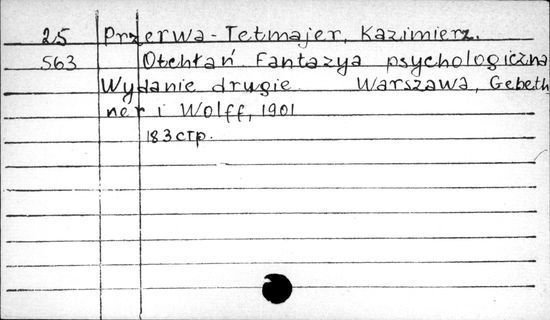 25 Przerwa-Tetmajer, Kazimierz.
563 Otchłań. Fantazya psychologiczna
Wydanie drugie. Warszawa, Gebeth
ner i Wolff, 1901
183 стр.